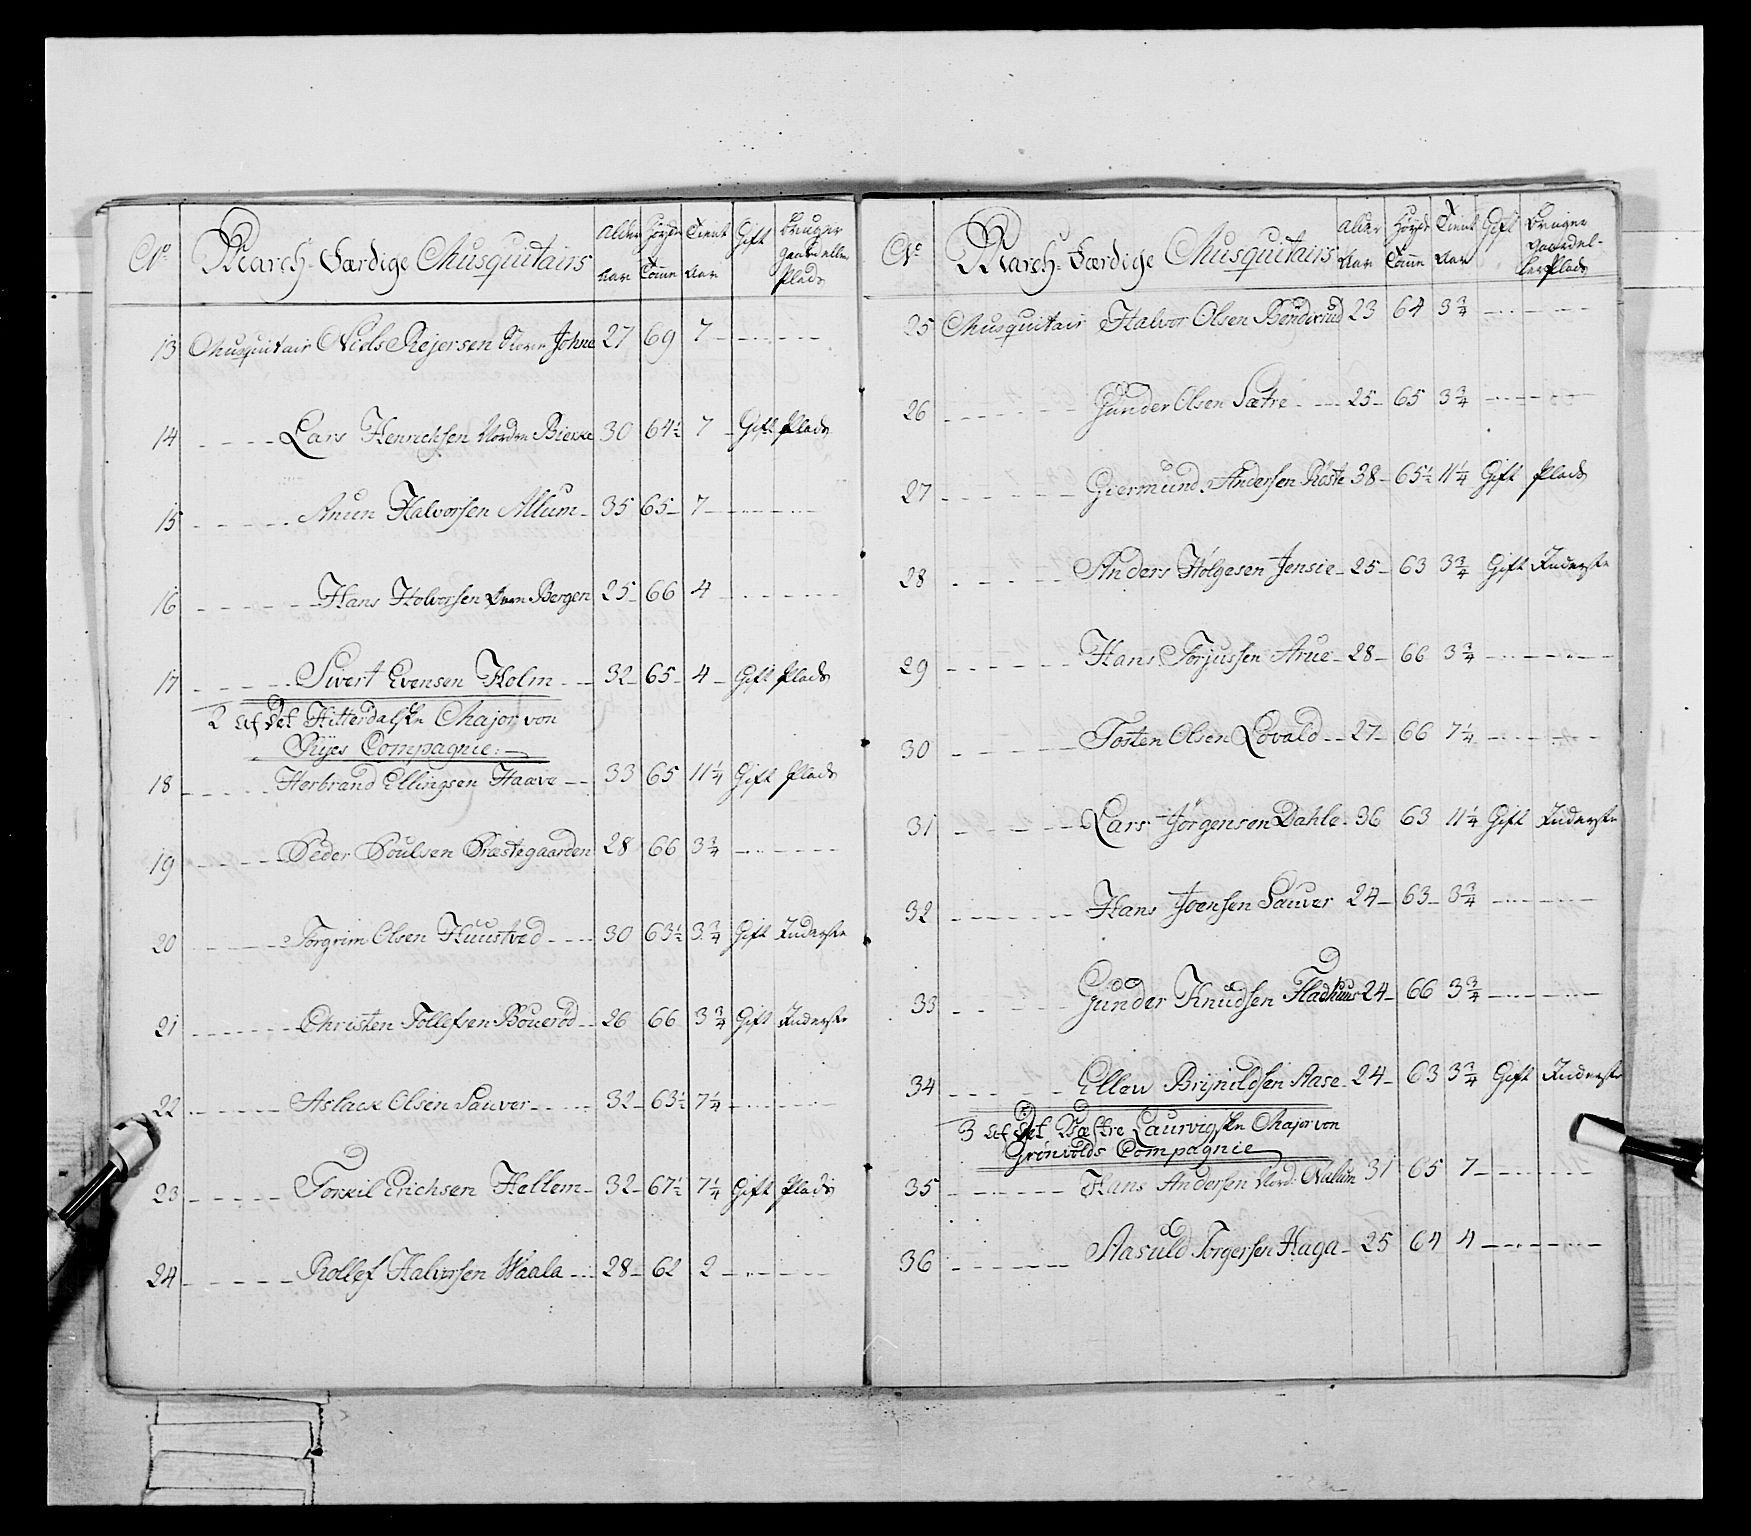 No March-Færdige Musquitairs Alder Aar Høyde Tome Tient Aar Gift Bruger Gaard eller Plads
13 Musquitair Niels Rejersen Johne 27 69 7 - - -
14 - - - Lars Henrichsen Nordre Bierke 30 64½ 7 Gift Plads
15 - - - Anun Halvorsen Allum 35 65 7 - - -
16 - - - Hans Holvorsen Bergen 25 66 4 - - -
17 - - - Sivert Evensen Holm 32 65 4 Gift Plads
2 Af Det Hitterdalske Major von
Ryes Compagnie:
18 - - - Herbrand Ellingsen Haave 33 65 11¼ Gift Plads
19 - - - Peder Poulsen Præstegaarden 28 66 3¼ - - -
20 - - - Torgrim Olsen Huustved 30 63½ 3¾ Gift Inderste
21 - - - Christen Tollefsen Bouerød 26 66 3¾ Gift Inderste
22 - - - Aslack Olsen Sauver 32 63½ 7¼ - - -
23 - - - Torkil Erichsen Hellem 32 67½ 7¼ Gift Plads
24 - - - Rollef Halvorsen Waala 28 62 2 - - -
No March-Færdige Musquitairs Alder Aar Høyde Tome Tient Aar Gift Bruger Gaard eller Plads
25 Musquitair Halvor Olsen Bønderud 23 64 3¾ - - -
26 - - - Gunder Olsen Sætre 25 65 3¾ - - -
27 - - - Giermund Andersen Røste 38 65½ 11¼ Gift Plads
28 - - - Anders Holgesen Jensie 25 63 3¾ Gift Inderste
29 - - - Hans Torjussen Arue 28 66 3¾ - - -
30 - - - Tosten Olsen Lovald 27 66 7¼ - - -
31 - - - Lars Jørgensen Dahle 36 63 11¼ Gift Inderste
32 - - - Hans Joensen Sauver 24 63 3¾ - - -
33 - - - Gunder Knudsen Fladhuus 24 66 3¾ - - -
34 - - - Ellev Brynildsen Aase 24 63 3¾ Gift Inderste
3 Af Det Væstre Laurvigske Major von
Grönvolds Compagnie
35 - - - Hans Andersen Nord: Nalum 31 65 7 - - -
36 - - - Aasuld Torgersen Haga 25 64 4 - - -